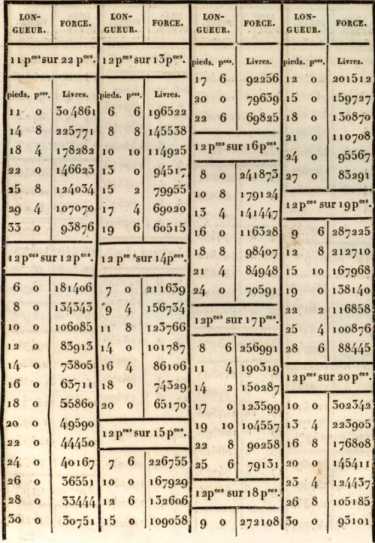 LON-
GUEUR.
FORCE.
11 pces sur 22 pces.
pieds. pces. Livres.
11 0 304861
14 8 225771
18 4 178282
22 0 146623
25 8 124034
29 4 107070
33 0 93876
12 pces sur 12 pces.
6 0 181406
8 0 134343
10 0 106085
12 0 83913
14 0 73805
16 0 63711
18 0 55860
20 0 49590
22 0 44450
24 0 40167
26 0 36551
28 0 33444
30 0 30751
LON-
GUEUR.
FORCE.
12 pces sur 13 pces.
pieds. pces. Livres.
6 6 196522
8 8 145538
10 10 114925
13 0 94517
15 2 79955
17 4 69020
19 6 60515
12 pces sur 14 pces.
7 0 211639
9 4 156734
11 8 123766
14 0 101787
16 4 86106
18 0 74329
20 0 65170
12 pces sur 15 pces.
7 6 226755
10 0 167929
12 6 132606
15 0 109058
LON-
GUEUR.
FORCE.
17 6 92256
20 0 79639
22 6 69825
12 pces sur 16 pces.
8 0 241873
10 8 179124
13 4 141447
16 0 116328
18 8 98407
21 4 84948
24 0 70591
12 pces sur 17 pces.
8 6 256991
11 4 190319
14 2 150287
17 0 123599
19 10 104557
22 8 90258
25 6 79131
12 pces sur 18 pces.
9 0 272108
LON-
GUEUR.
FORCE.
12 0 201512
15 0 159727
18 0 130870
21 0 110708
24 0 95567
27 0 83291
12 pces sur 19 pces.
9 6 287225
12 8 212710
15 10 167968
19 0 138140
22 2 116858
25 4 100876
28 6 88445
12 pces sur 20 pces.
10 0 302342
13 4 223905
16 8 176808
20 0 145411
23 4 124437
26 8 105185
30 0 93101